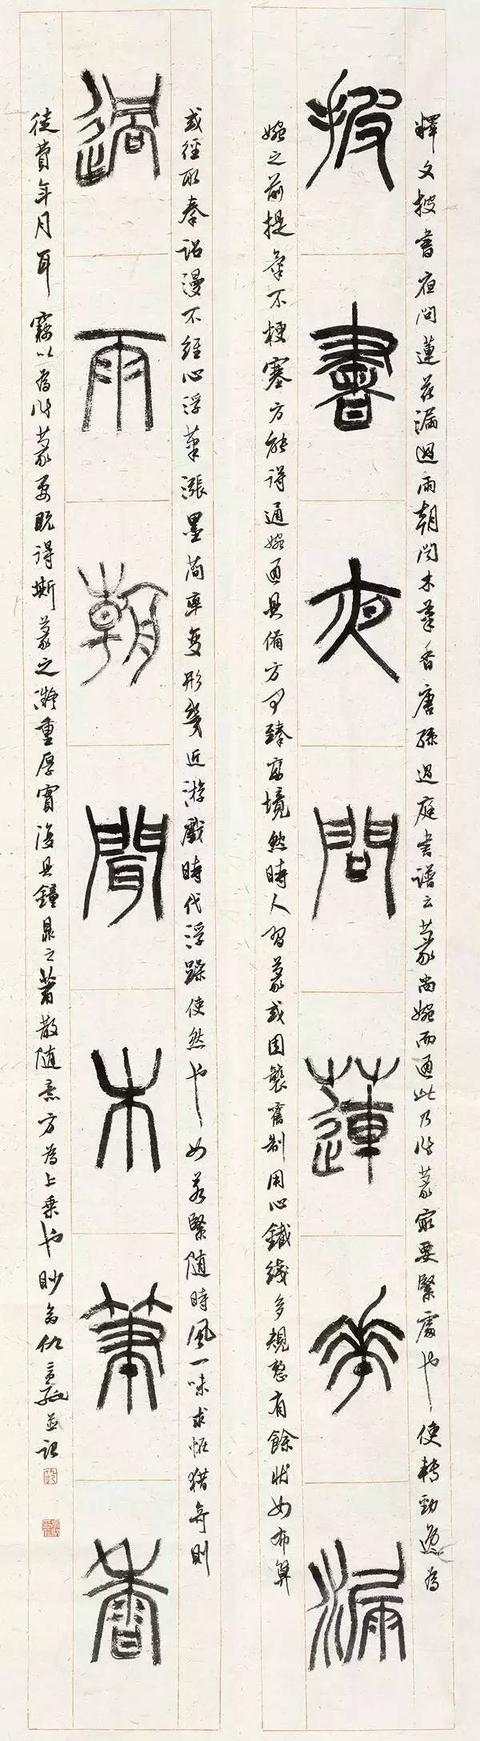 釋文披書夜問蓮花漏過雨朝聞木筆香唐孫過庭書譜云篆尚婉而通此乃作篆最要緊處也使轉勁逸為
披書夜問蓮花漏
婉之前提筆不梗塞方能得通婉通具備方可臻高境然時人習篆或因襲舊制用心鐵綫多規整有餘狀如布算
或徑取秦詔漫不經心浮筆漲墨簡率變形幾近游戲時代浮躁使然也如若緊隨時風一味求怪獵奇則
過雨朝聞木筆香
徒費年月耳竊以為作篆要既得斯篆之凝重厚實復具鐘鼎之蕭散隨意方為上乘也仇並記